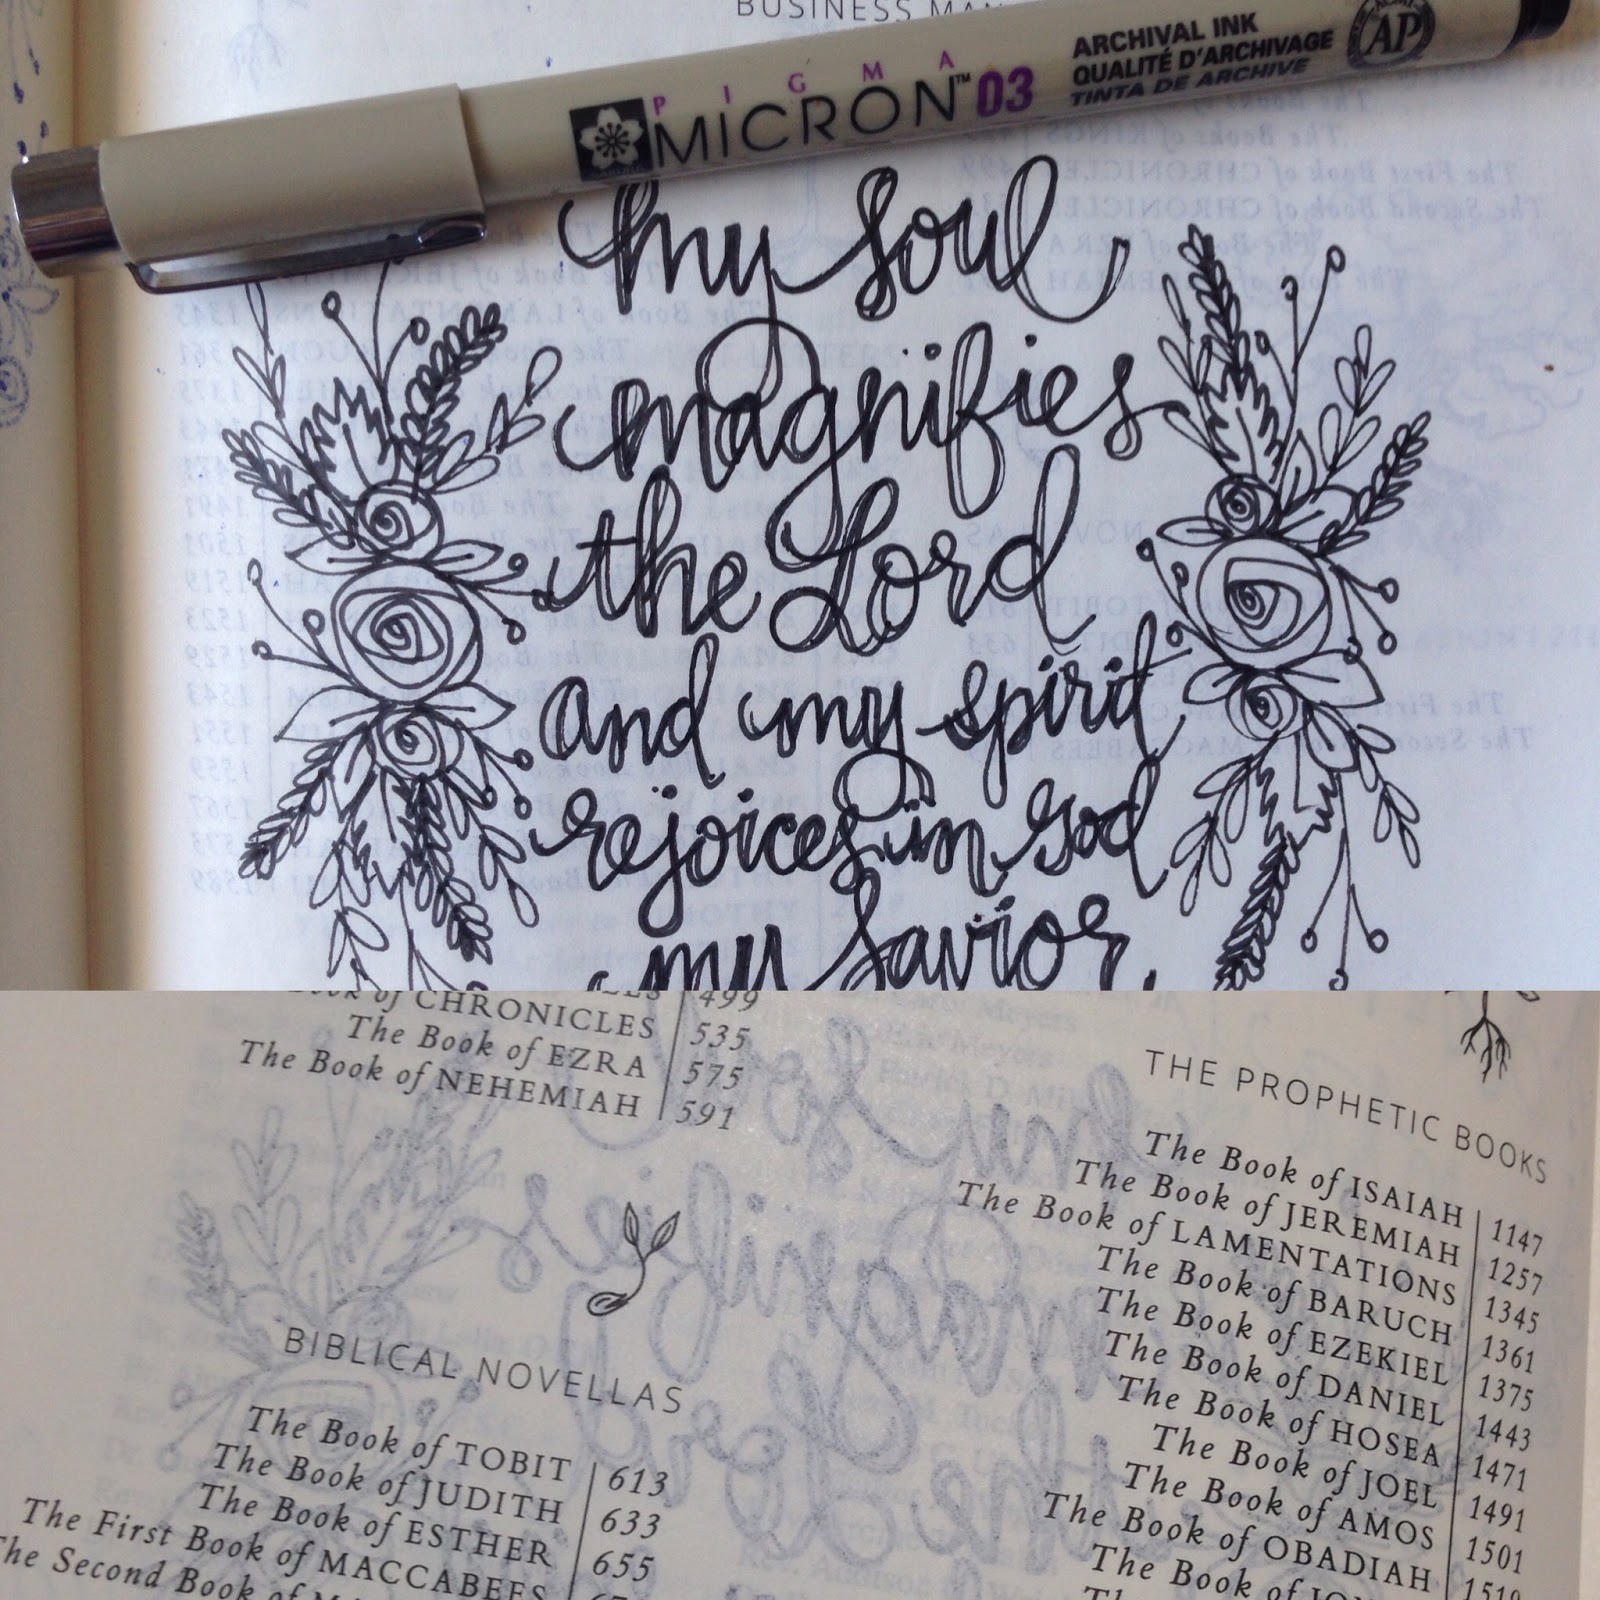 BUSINESS MAN
PIGMA
MICRON™ 03
ARCHIVAL INK
QUALITÉ D'ARCHIVAGE
TINTA DE ARCHIVE
AP
my soul
magnifies
the Lord
and my spirit
rejoices in God
my Savior.
Book of CHRONICLES 535
The Book of EZRA 575
The Book of NEHEMIAH 591
BIBLICAL NOVELLAS
The Book of TOBIT 613
The Book of JUDITH 633
The Book of ESTHER 655
The First Book of MACCABEES
The Second Book of
THE PROPHETIC BOOKS
The Book of ISAIAH 1147
The Book of JEREMIAH 1257
The Book of LAMENTATIONS 1345
The Book of BARUCH 1361
The Book of EZEKIEL 1375
The Book of DANIEL 1443
The Book of HOSEA 1471
The Book of JOEL 1491
The Book of AMOS 1501
The Book of OBADIAH 1519
The Book of